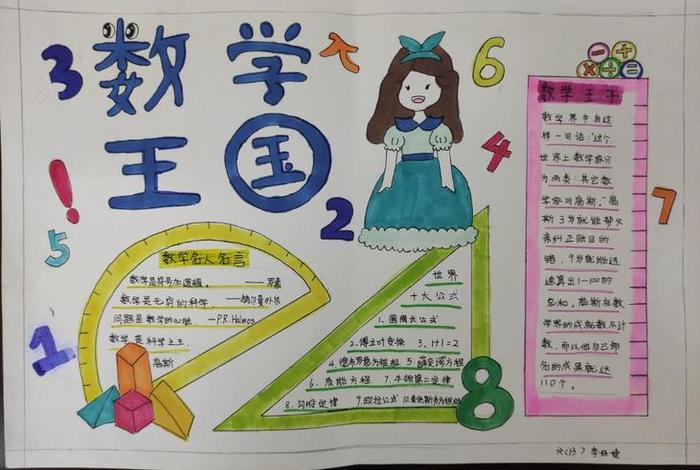 数学
王国
3
6
4
2
5
1
7
8
- +
× ÷ =
数学名人名言
数学是符号加逻辑。——罗素
数学是无穷的科学。——赫尔曼外尔
问题是数学的心脏 —P.R.Halmos
数学是科学之王
高斯
世界
十大公式
1、圆周长公式
2、傅立叶变换 3、1+1=2
4、德布罗意方程组 5、薛定谔方程
6、质能方程 7、牛顿第二定律
8、勾股定律 9、欧拉公式 10、麦克斯韦方程组
数学王子
数学界中有这
样一句话:"这个
世界上数学家分
为两类:其它数
学家与高斯。"高
斯3岁就能帮父
亲纠正账目的
错,9岁就能迅
速算出1—100的
总和,高斯在数
学界的成就数不计
数,而以他自己命
名的成果就达
110个。
六(13)